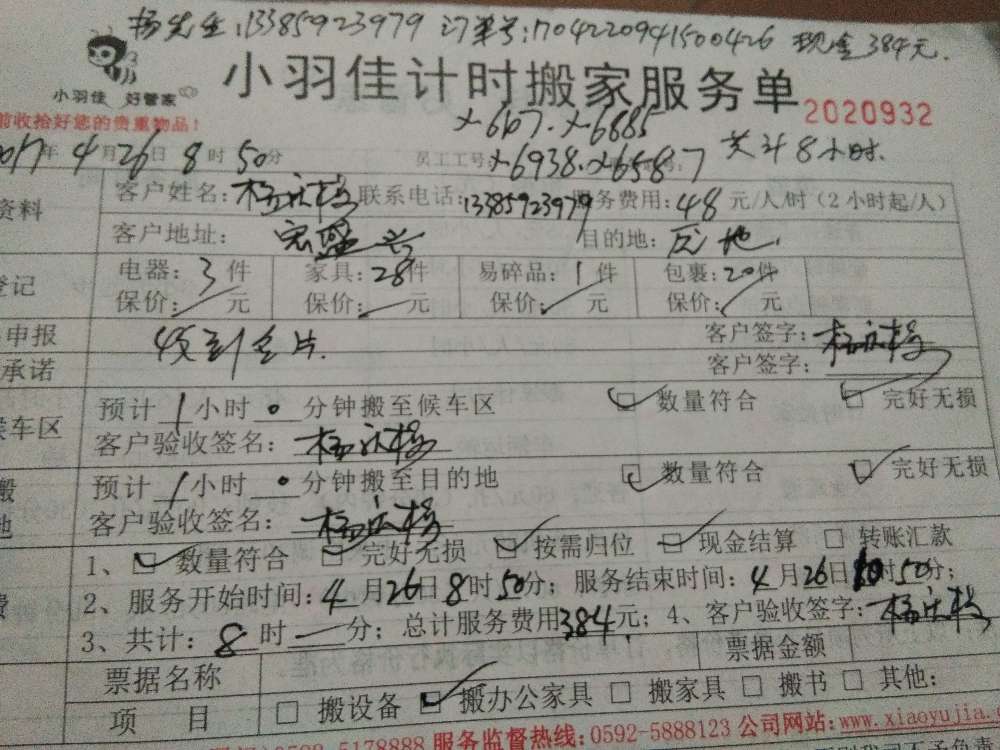 杨先生:13385923979 订单号:1704220941500426 现金384元.
小羽佳 好管家
小羽佳计时搬家服务单
2020932
前收拾好您的贵重物品!
x-6167. x-6885
2017年4月26日8时50分 员工工号: x-6938. x-6587 共计8小时.
资料 客户姓名: 联系电话:13385923979 服务费用:48元/人/时(2小时起/人)
客户地址: 宏盛兴 目的地:
登记 电器:3件 家具:28件 易碎品:1件 包裹:20件
保价: 元 保价: 元 保价: 元 保价: 元
申报 客户签字:
承诺 客户签字:
候车区 预计1小时0分钟搬至候车区 数量符合 完好无损
客户验收签名:
搬 预计1小时0分钟搬至目的地 数量符合 完好无损
地 客户验收签名:
1、数量符合 完好无损 按需归位 现金结算 转账汇款
费 2、服务开始时间:4月26日8时50分;服务结束时间:4月26日10时50分;
3、共计:8时—分;总计服务费用384元;4、客户验收签字:
票据名称 票据金额
项 目 搬设备 搬办公家具 搬家具 搬书 其他:
5178888 服务监督热线:0592-5888123 公司网站:www.xiaoyujia